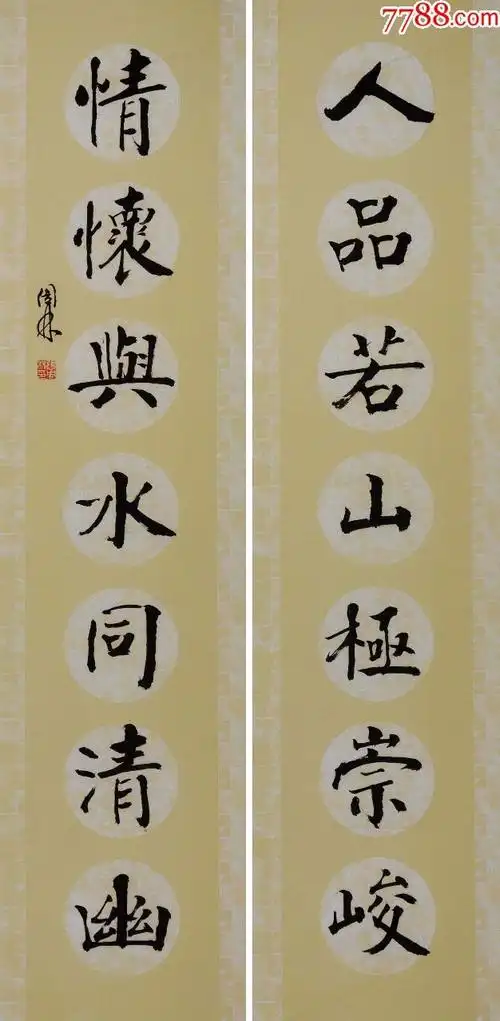 7788.com
人品若山極崇峻
情懷與水同清幽